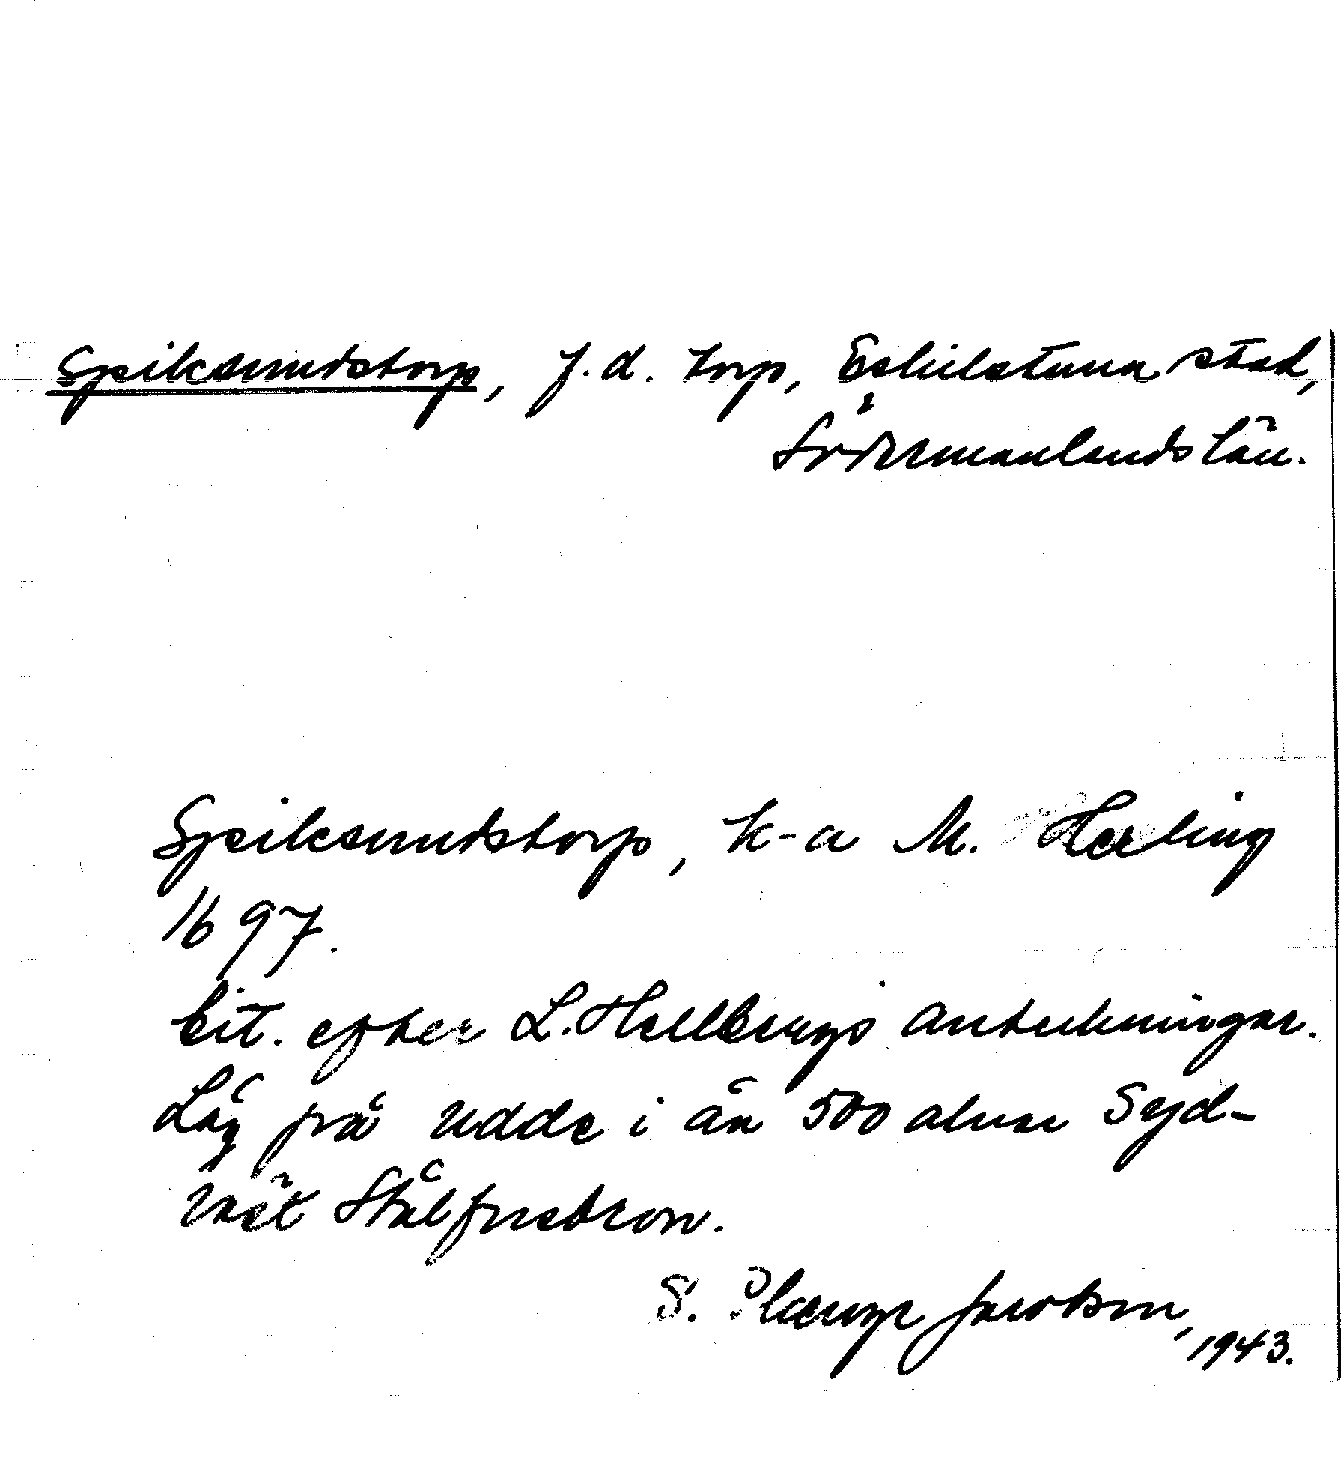 Spiksundstorp, f.d. torp, Eskilstuna stad,
Södermanlands län.
Spiksundstorp, k-a M. Herling
1697.
Cit. efter L. Hellbergs anteckningar.
Låg på udde i ån 500 alnar Syd-
väst Stålforsbron.
S. Plænge Jacobson,
1943.